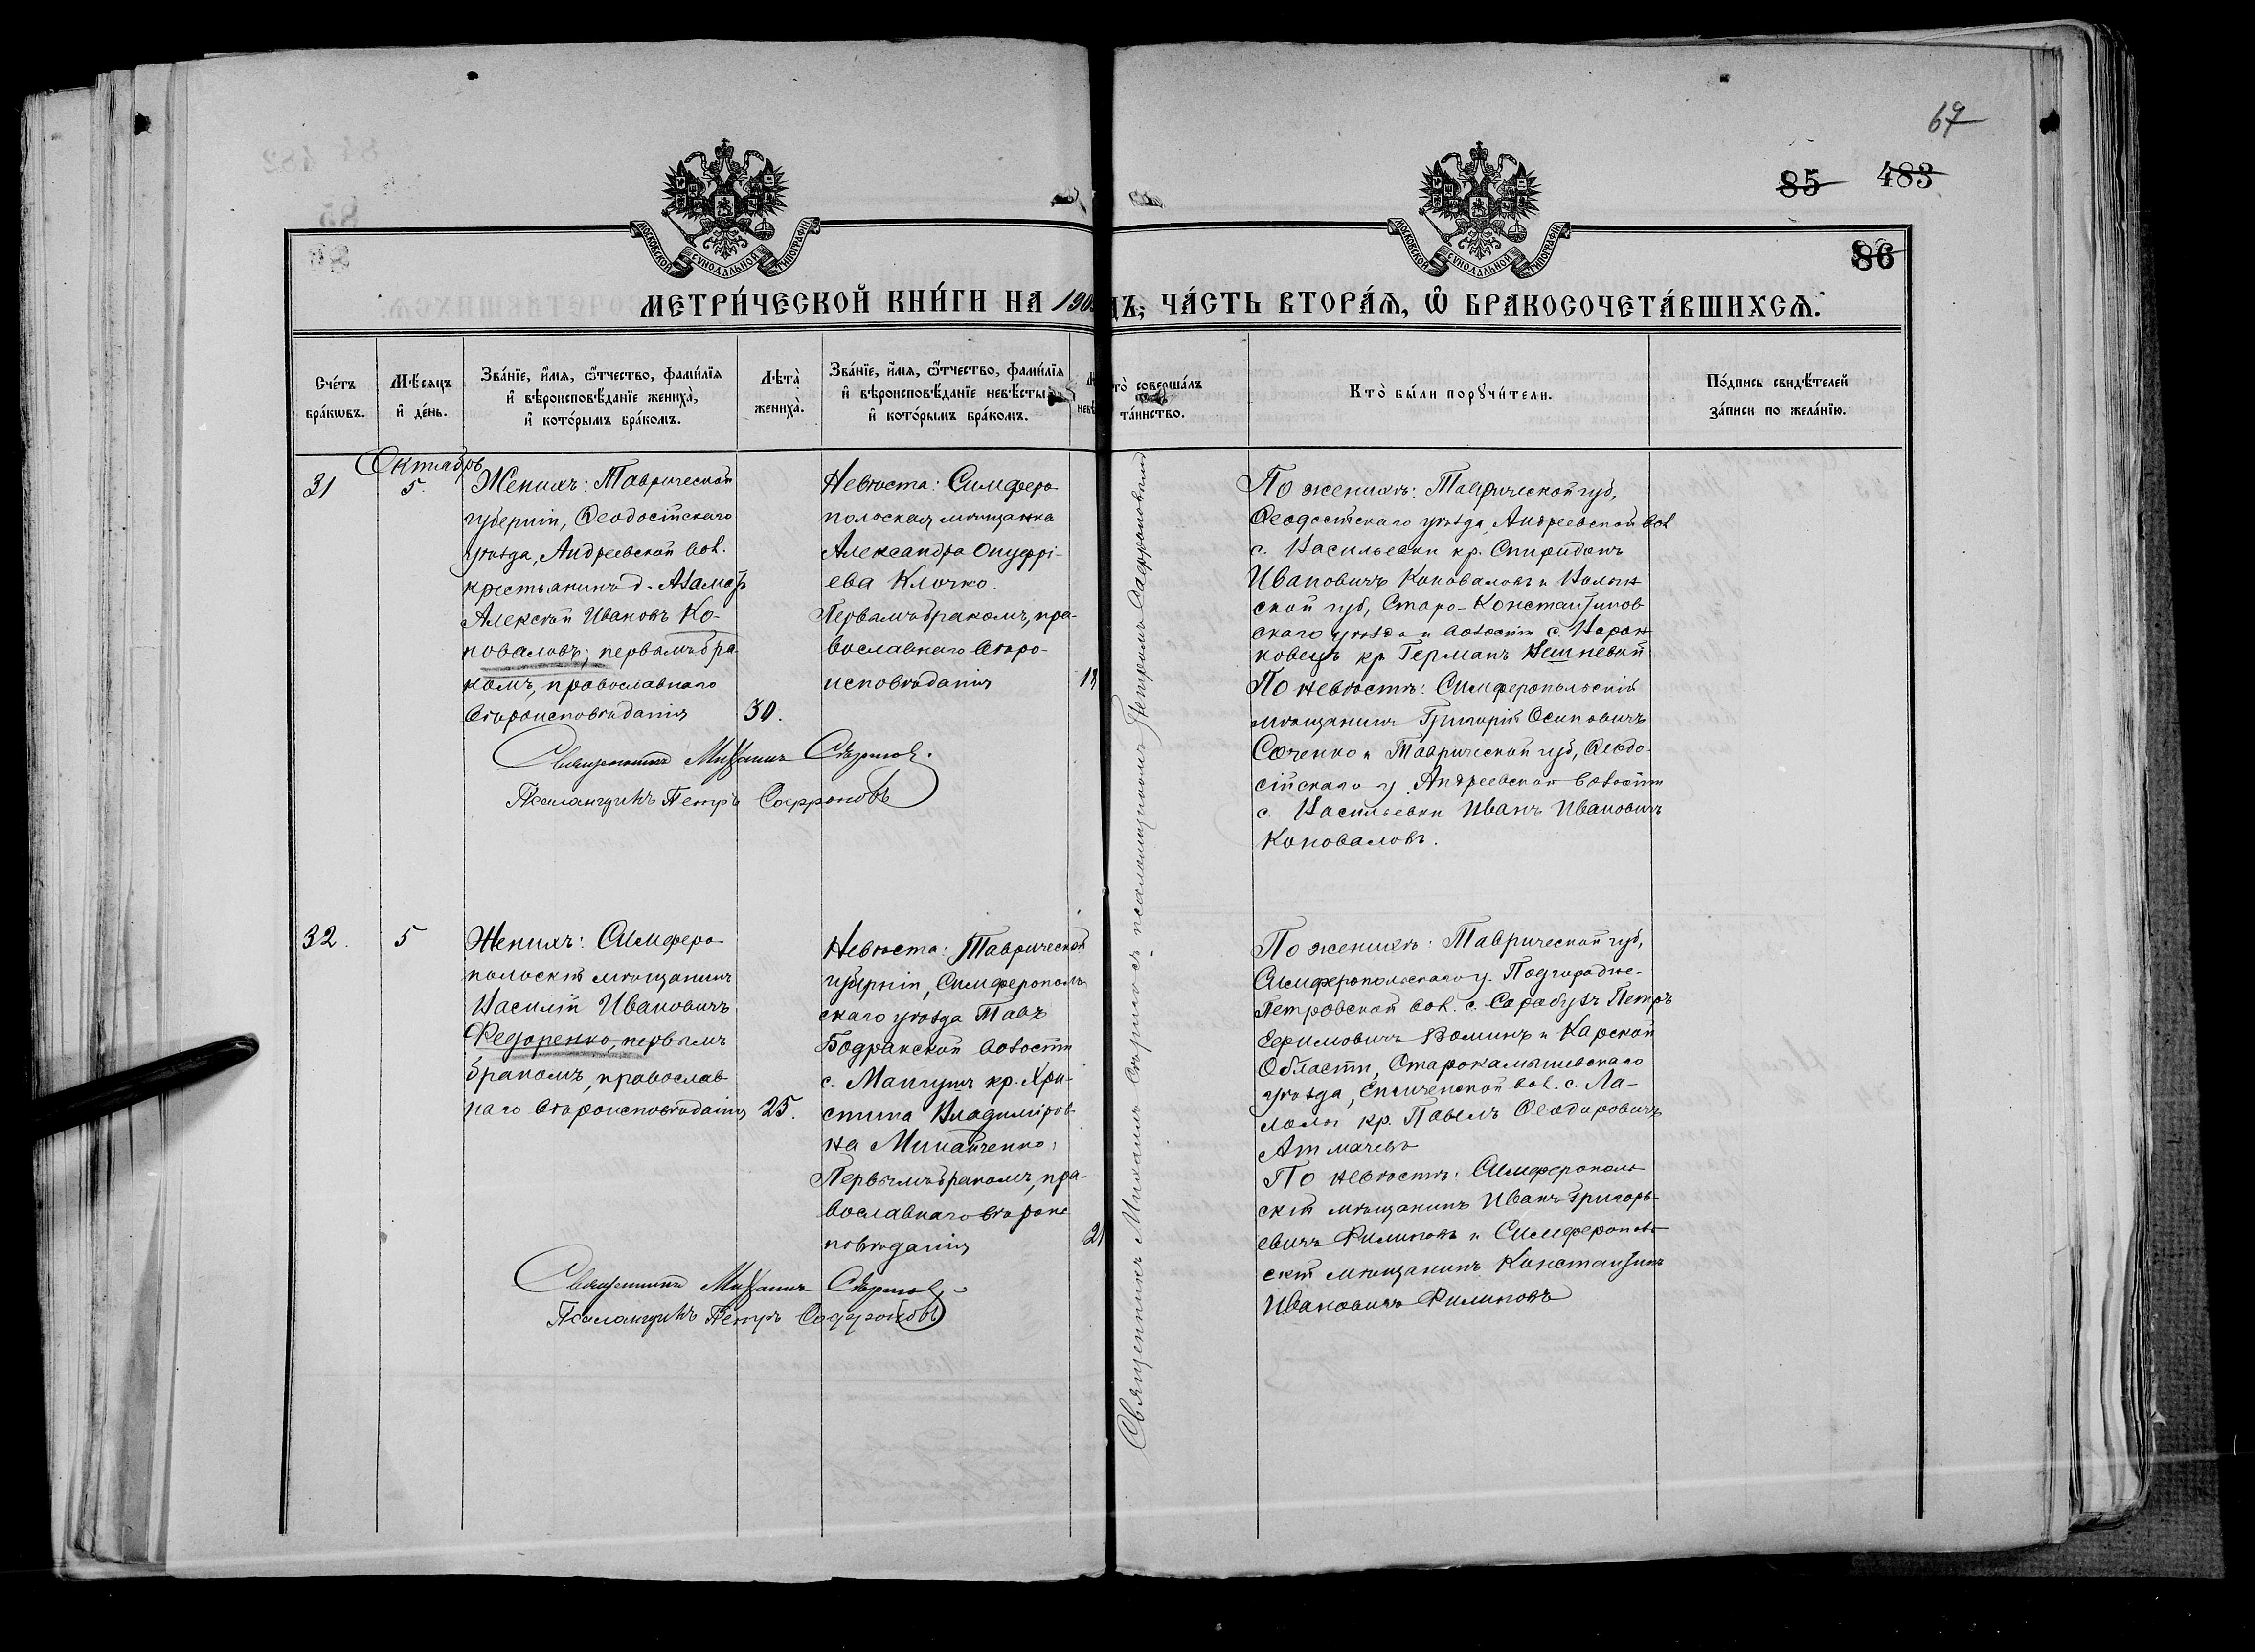 67
85 483
86
МОСКОВСКОЙ СѴНОДАЛЬНОЙ ТИПОГРАФІИ
МОСКОВСКОЙ СѴНОДАЛЬНОЙ ТИПОГРАФІИ
МЕТРИ́ЧЕСКОЙ КНИ́ГИ НА 190
ДЪ, ЧА́СТЬ ВТОРА́Я, Ѿ БРАКОСОЧЕТА́ВШИХСѦ.
Сче́тъ
бра́кѡвъ.
Мѣ́сяцъ
и҆ де́нь.
Зва́нїе, и҆́мя, ѻ҆́тчество, фами́лїя
и҆ вѣроисповѣ́данїе жениха̀,
и҆ кото́рымъ бра́комъ.
Лѣта̀
жениха̀.
Зва́нїе, и҆́мя, ѻ҆́тчество, фами́лїя
и҆ вѣроисповѣ́данїе невѣ́сты
и҆ кото́рымъ бра́комъ.
невѣ
то̀ соверша́лъ
та́инство.
Кто̀ бы́ли порꙋчи́тели.
По́дпись свидѣ́телей
за́писи по жела́нїю.
Октябрь
31
5.
Женихъ: Таврической
губерніи, Ѳеодосійскаго
уѣзда, Андреевской вол.
крестьянинъ д.
Алексѣй Ивановъ Ко-
новаловъ; первымъ бра
комъ, православнаго
вѣроисповѣданія
30.
Невѣста: Симферо
польская мѣщанка
Александра Онуфрі-
ева Клочко.
Первымъ бракомъ, пра-
вославнаго вѣро-
исповѣданія
18
Священникъ Михаилъ
Псаломщикъ Петръ Саффоновъ
Священникъ Михаилъ съ псаломщикомъ Петромъ Саффоновымъ
По женихѣ: Таврической губ,
Ѳеодосійскаго уѣзда, Андреевской вол
с. Васильевки кр. Спиридонъ
Ивановичъ Коноваловъ и Волын
ской губ, Старо-Константинов
скаго уѣзда и волости с. Ворон
ковецъ кр. Германъ
По невѣстѣ: Симферопольскій
мѣщанинъ Григорій Осиповичъ
Соченко и Таврической губ, Ѳеодо-
сійскаго у. Андреевской волости
с. Васильевки Иванъ Ивановичъ
Коноваловъ.
32.
5
Женихъ: Симферо
польскій мѣщанинъ
Василій Ивановичъ
Федоренко, первымъ
бракомъ, православ
наго вѣроисповѣданія
25.
Невѣста: Таврической
губерніи, Симферополь
скаго уѣзда Тавъ
Бодракской волости
с. Мангушъ кр. Хри-
стина Владиміров
на Минайченко,
Первымъ бракомъ, пра-
вославнаго вѣроис
повѣданія
21
Священникъ Михаилъ
Псаломщикъ Петръ Саффоновъ
По женихѣ: Таврической губ,
Симферопольскаго у. Подгородне-
Петровской вол. с. Сарабузъ Петръ
Ефимовичъ Воминъ и Карской
Области,
уѣзда, вол. с. Ла-
ломъ кр. Павелъ Ѳеодоровичъ
По невѣстѣ: Симферополь
скій мѣщанинъ Иванъ Григорь-
евичъ Филиповъ и Симферополь
скій мѣщанинъ Константинъ
Ивановичъ Филиповъ